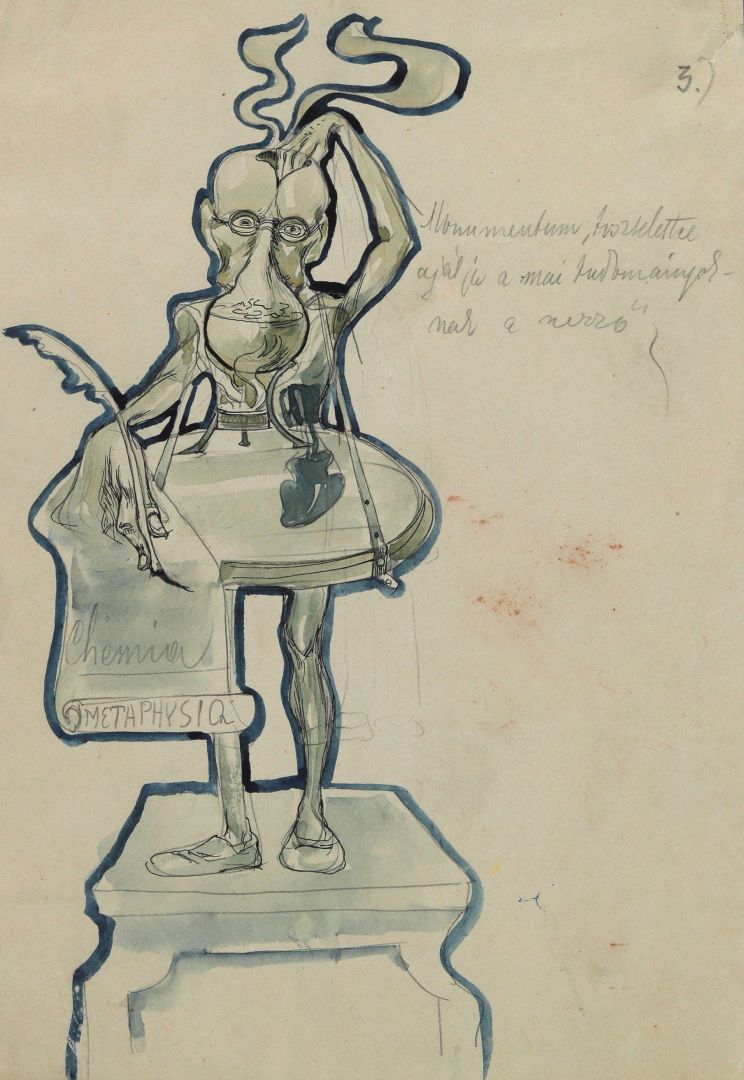 3.)
Monumentum, tisztelettel
ajálja a mai tudományok-
nak a
Chemia
METAPHYSIA